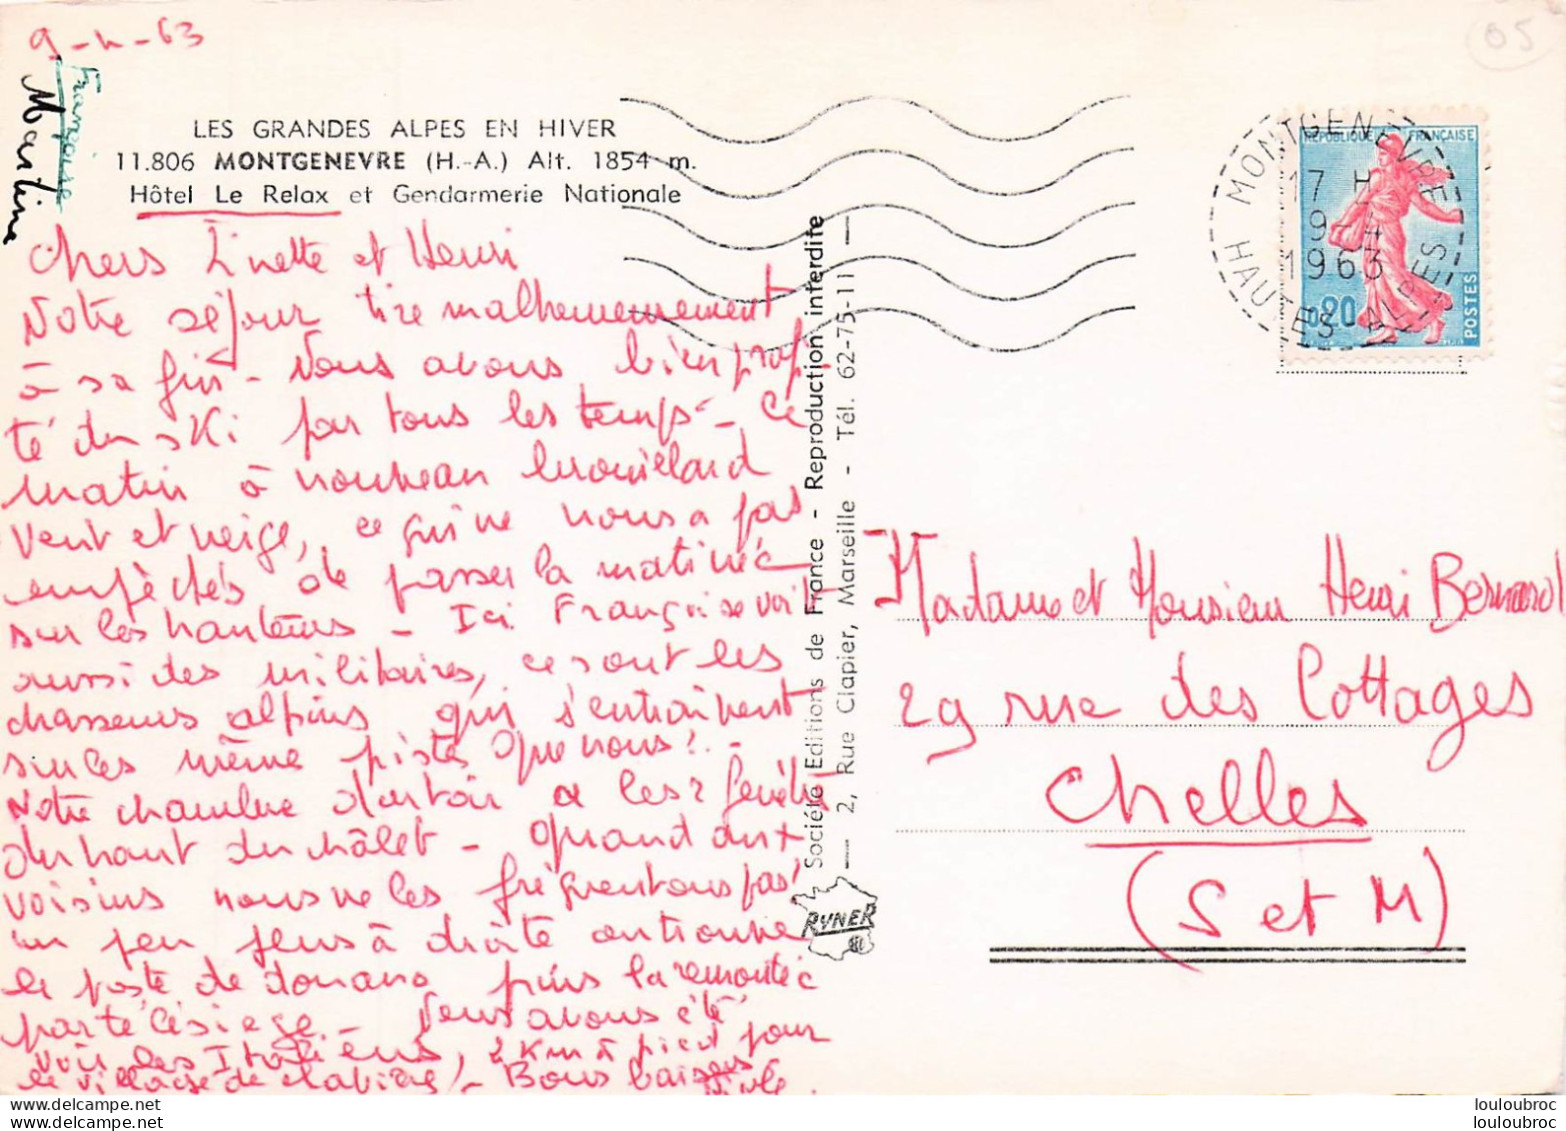 9-4-63
05
Françoise
Martine
LES GRANDES ALPES EN HIVER
11.806 MONTGENEVRE (H.-A.) Alt. 1854 m.
Hôtel Le Relax et Gendarmerie Nationale
Chers Linette et Henri
Notre séjour tire malheureusement
à sa fin - Nous avons bien profi
té du ski par tous les temps - Ce
matin à nouveau brouillard
vent et neige, ce qui ne nous a pas
empêchés de passer la matinée
sur les hauteurs - Ici Françoise voit
aussi des militaires, ce sont les
chasseurs alpins qui s'entraînent
sur les même pistes que nous! -
Notre chambre dortoir a les 2 fenêtres
du haut du châlet - Quand aux
voisins nous ne les fréquentons pas!
un peu plus à droite on trouve
le poste de douane puis la remontée
par télésiège - Nous avons été
voir les Italiens, 2 Km à pied pour
le village de Clavière! - Bons baisers
MONTGENEVRE
17 H
9-4
1963
HAUTES ALPES
REPUBLIQUE FRANÇAISE
0,20
POSTES
Société Editions de France - Reproduction interdite
2, Rue Clapier, Marseille - Tél. 62-75-11
RYNER
Madame et Monsieur Henri Bernard
29 rue des Cottages
Chelles
(S et M)
louloubroc
louloubroc